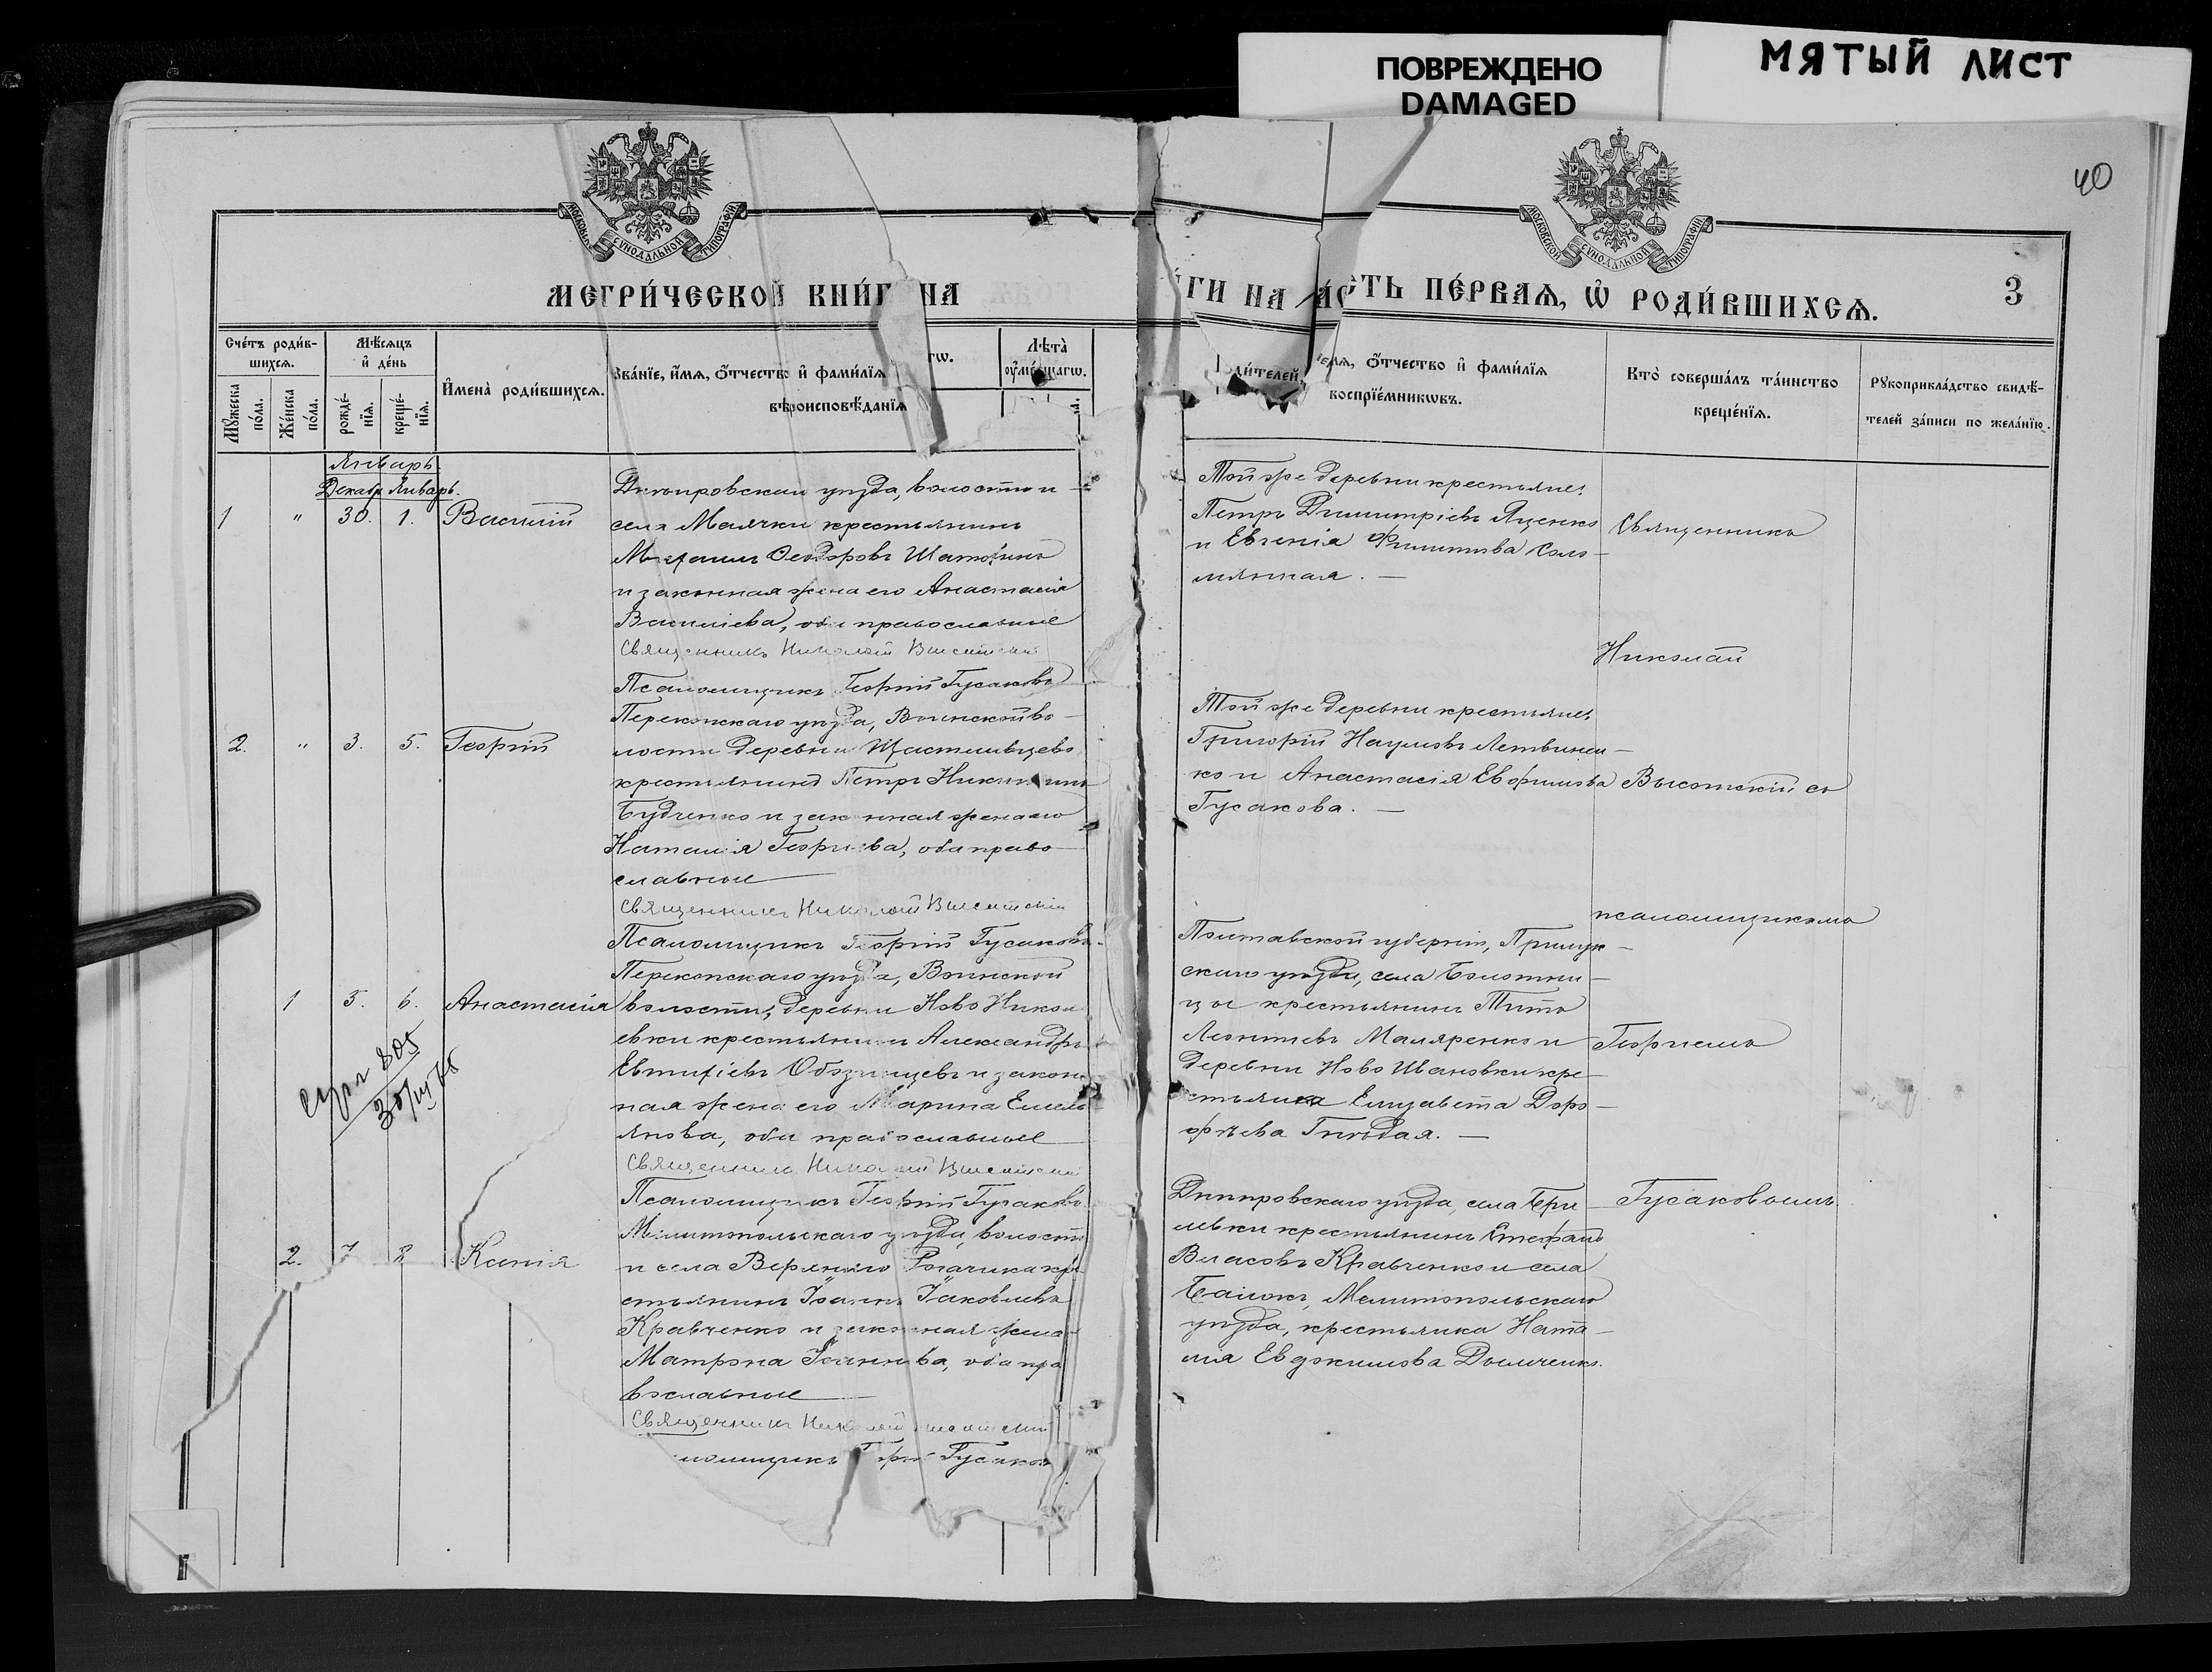 ПОВРЕЖДЕНО
DAMAGED
МЯТЫЙ ЛИСТ
40
МОСКОВСКОЙ СѴНОДАЛЬНОЙ ТИПОГРАФІИ
МОСКОВСКОЙ СѴНОДАЛЬНОЙ ТИПОГРАФІИ
МЕТРИ́ЧЕСКОЙ КНИ́Г НА
ГИ НА ЧА́СТЬ ПЕ́РВАѦ, Ѡ҆ РОДИ́ВШИХСѦ.
3
Сче́тъ роди́в-
шихсѧ.
Мꙋжеска по́ла.
Же́нска по́ла.
Мѣ́сѧцъ
и҆ де́нь
рожде́-
нїѧ.
креще́-
нїѧ.
И҆мена̀ роди́вшихсѧ.
Зва́нїе, и҆́мѧ, ѻ҆́тчество и҆ фами́лїѧ
вѣроисповѣ́данїѧ
Лѣ́та
ѻ҆́тчество и҆ фами́лїѧ
воспрїе́мникѡвъ.
Кто̀ соверша́лъ та́инство
креще́нїѧ.
Рꙋкоприкла́дство свидѣ́-
телей за́писи по жела́нїю.
Январь
Декабр Январь.
1 " 30. 1. Василій
Днѣпровскаго уѣзда, волости и
села Маячки крестьянинъ
Михаилъ Ѳеодоровъ
и законная жена его Анастасія
Василіева, оба православные
Священникъ Николай Высотскій
Псаломщикъ Георгій Гусаковъ
Той же деревни крестьяне
Петръ Димитріевъ Яценко
и Евгенія Филиппова Соло-
мянная. —
Священникъ
Николай
2. " 3. 5. Георгій
Перекопскаго уѣзда, Воинской во-
лости деревни Щастливцево
крестьянинъ Петръ
Будченко и законная жена его
Наталія Георгіева, оба право-
славные
Священникъ Николай Высотскій
Псаломщикъ Георгій Гусаковъ.
Той же деревни крестьяне
Григорій Наумовъ Летвинен-
ко и Анастасія Евфимова
Гусакова. —
Высотскій съ
псаломщикомъ
1 5. 6. Анастасія
Перекопскаго уѣзда, Воинской
волости, деревни Ново Никол
евки крестьянинъ Александръ
Евтихіевъ и закон
ная жена его Марина Емель
янова, оба православные
Священникъ Николай Высотскій
Псаломщикъ Георгій Гусаковъ
Полтавской губерніи, Прилук-
скаго уѣзда, села Болотни-
цы крестьянинъ Титъ
Леонтіевъ Маляренко и
деревни Ново Ивановки кре-
стьянка Елизавета Доро-
фѣева Гнѣдая. —
Георгіемъ
2. 7 8 Ксенія
Мелитопольскаго уѣзда, волости
и села Верхняго Рогачика кре
стьянинъ Іоаннъ Іаковлевъ
Кравченко и законная жена
Матрона Іоаннова, оба пра
вославные
Священникъ Николай Высотскій
ломщикъ Георгій Гусаков
Днѣпровскаго уѣзда, села Бри-
левки крестьянинъ Стефанъ
Власовъ Кравченко и села
Балокъ, Мелитопольскаго
уѣзда, крестьянка Ната-
лія Евдокимова Домченко.
Гусаковымъ.